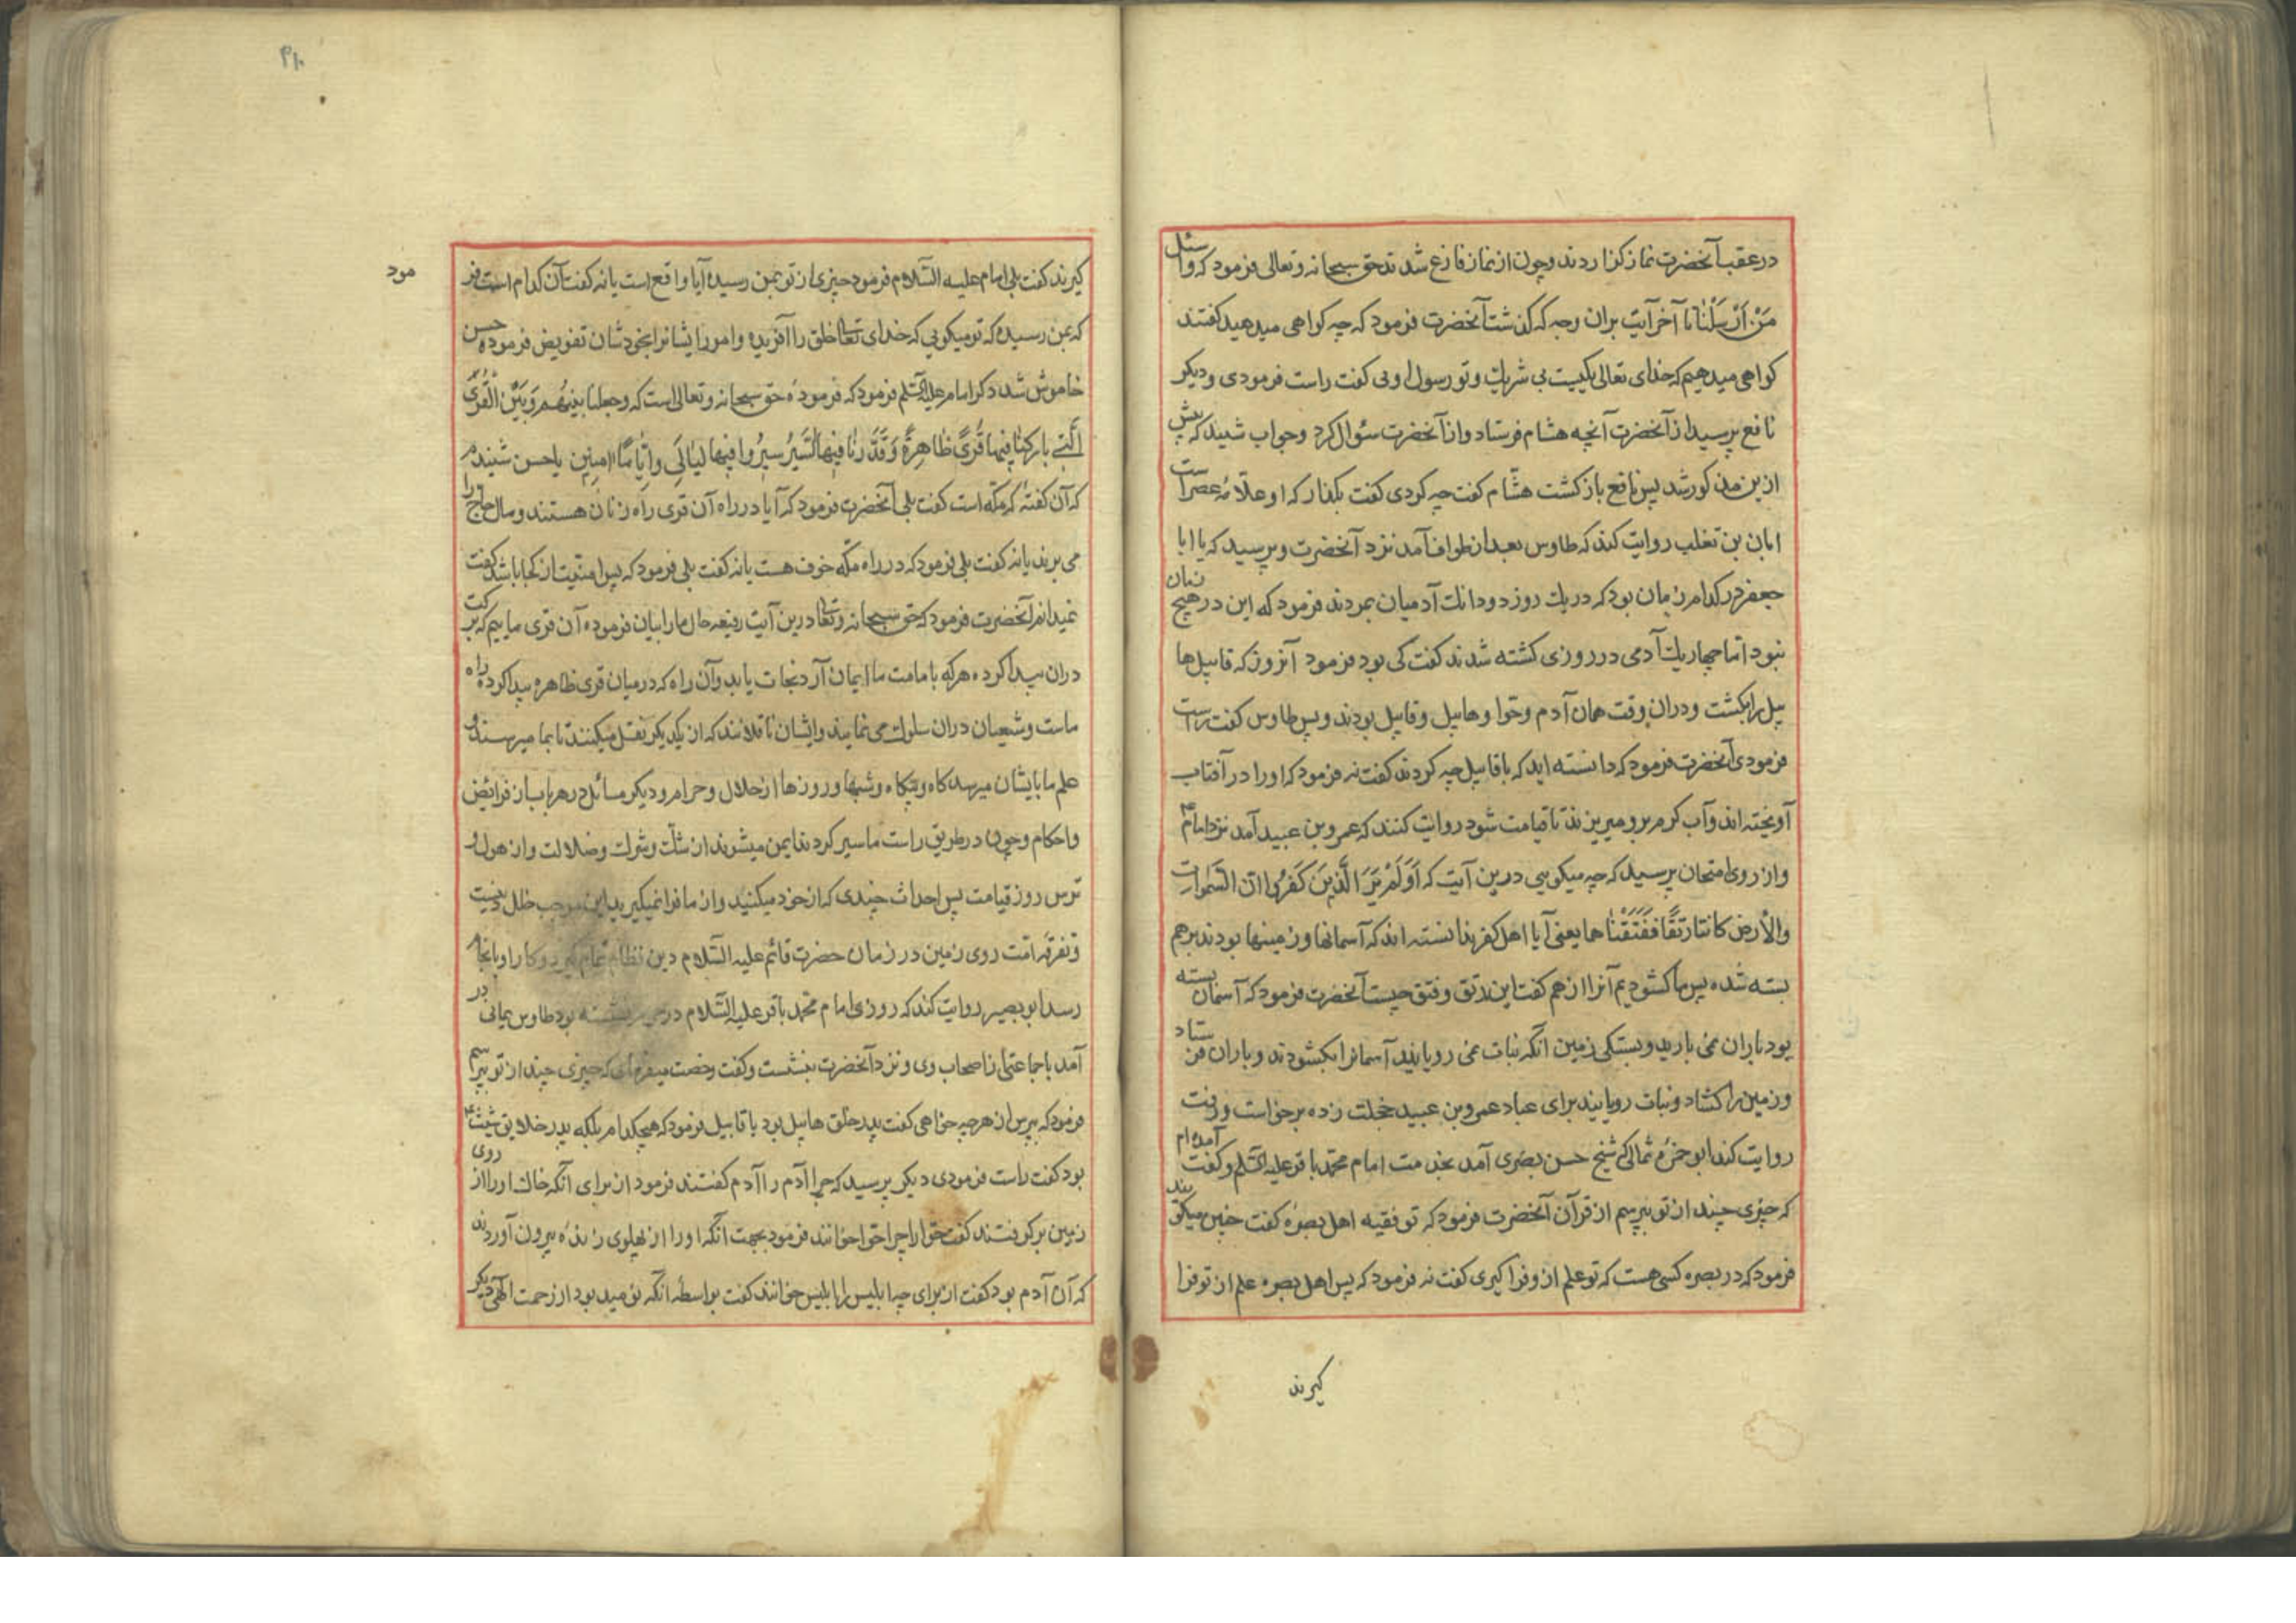 در عقب آنحضرت نماز کزاردند و چون از نماز فارغ شدند حق سبحانه و تعالی فرمود که واسئل
مَنْ اَرْسَلْنٰا تا آخر آیت بران وجه که کذشت آنحضرت فرمود که چه کواهی میدهید کفتند
کواهی میدهیم که خدای تعالی یکیست بی شریک و تو رسول اویی کفت راست فرمودی و دیکر
نافع پرسید از آنحضرت آنچه هشام فرستاد و از آنحضرت سؤال کرد و جواب شنید که پیش
ازین مذکور شد پس نافع باز کشت هشام کفت چه کردی کفت بکذار که او علّامهٔ عصر است
ابان بن تغلب روایت کند که طاوس بعد از طواف آمد نزد آنحضرت و پرسید که یا ابا
جعفر در کدام زمان بود که در یک روز دو دانک آدمیان بمردند فرمود که این در هیچ زمان
نبود اما چهار یک آدمی در روزی کشته شدند کفت کی بود فرمود آنروز که قابیل ها
بیل را بکشت و در ان وقت همان آدم و حوا و هابیل و قابیل بودند و بس طاوس کفت راست
فرمودی آنحضرت فرمود که دانسته اید که با قابیل چه کردند کفت نه فرمود که اورا در آفتاب
آویخته اند و آب کرم برو میریزند تا قیامت شود روایت کنند که عمرو بن عبید آمد نزد امام ع
و از روی امتحان پرسید که چه میکویی درین آیت که اَوَلَمْ یَرَ الَّذینَ کَفَرُوا انّ السَّمٰوات
والاَرضَ کانتا رَتقًا فَفَتَقْنٰا هما یعنی آیا اهل کفر ندانسته اند که آسمانها و زمینها بودند برهم
بسته شده پس ما کشودیم آنرا از هم کفت این رتق و فتق چیست آنحضرت فرمود که آسمان بسته
بود باران نمی بارید و بستکی زمین آنکه نبات نمی رویانید آسمانرا بکشودند و باران فرستاد
و زمین را کشاد و نبات رویانید برای عباد عمرو بن عبید خجلت زده برخواست و رفت
روایت کند ابو حمزه ثمالی که شیخ حسن بصری آمد بخدمت امام محمد باقر علیه السّلم و کفت آمده ام
که چیزی چند از تو بپرسم از قرآن آنحضرت فرمود که تو فقیه اهل بصرهٔ کفت چنین میکویند
فرمود که در بصره کسی هست که تو علم ازو فرا کیری کفت نه فرمود که پس اهل بصره علم از تو فرا
کیرند
۴۱۰
کیرند کفت بلی امام علیه السّلام فرمود چیزی از تو بمن رسیده آیا واقع است یا نه کفت آن کدام است فر
مود
که بمن رسیده که تو میکویی که خدای تعالی خلق را آفریده و امور ایشانرا بخودشان تفویض فرموده حسن
خاموش شد دکر امام علیه السّلم فرمود که فرمودهٔ حق سبحانه و تعالی است که و جعلنا بینهُم وَبَیْنَ الْقُرَی
الَّتی بارکنٰا فیها قُرًی ظٰاهِرةً وَقَدَّرنٰا فیهَا السَّیرَ سیرُوا فیها لیٰالیَ وایّامًا امنین یا حسن شنیدم
که آن کفتهٔ که مکّه است کفت بلی آنحضرت فرمود که آیا در راه آن قری راه زنان هستند و مال حاج را
می برند یا نه کفت بلی فرمود که در راه مکّه خوف هست یا نه کفت بلی فرمود که پس امنیت از کجا باشد کفت
نمیدانم آنحضرت فرمود که حق سبحانه و تعالی درین آیت رفیعه حال ما را بیان فرموده آن قری ماییم که برکت
دران پیدا کرده هر که بامامت ما ایمان آرد نجات یابد و آن راه که در میان قری ظاهره پیدا کرده راه
ماست و شیعیان دران سلوک می نمایند و ایشان ناقلانند که از یکدیکر نقل میکنند تا بما میرسند و
علم ما بایشان میرسد کاه و بیکاه و شبها و روزها از حلال و حرام و دیکر مسائل در هر باب از فرایض
واحکام و چون در طریق راست ما سیر کردند ایمن میشوند از شک و شرک و ضلالت و از هول و
ترس روز قیامت پس احداث چندی که از خود میکنید و از ما فرا نمیکیرید این موجب خلل دینست
و تفرقهٔ امّت روی زمین در زمان حضرت قائم علیه السّلام دین نظام تمام کیرد و کار او بانجام
رسد ابو بصیر روایت کند که روزی امام محمد باقر علیه السّلام در حرم نشسته بود طاوس یمانی در
آمد با جماعتی از اصحاب وی و نزد آنحضرت بنشست و کفت رخصت میفرمای که چیزی چند از تو بپرسم
فرمود که بپرس از هر چه خواهی کفت پدر خلق هابیل بود یا قابیل فرمود که هیچکدام بلکه پدر خلایق شیث ع
بود کفت راست فرمودی دیکر پرسید که چرا آدم را آدم کفتند فرمود از برای آنکه خاک اورا از روی
زمین برکرفتند کفت حوّا را چرا حوّا خوانند فرمود بجهت آنکه اورا از پهلوی زندهٔ بیرون آوردند
که آن آدم بود کفت از برای چه ابلیس را ابلیس خوانند کفت بواسطه آنکه نومید بود از رحمت الهی دیکر